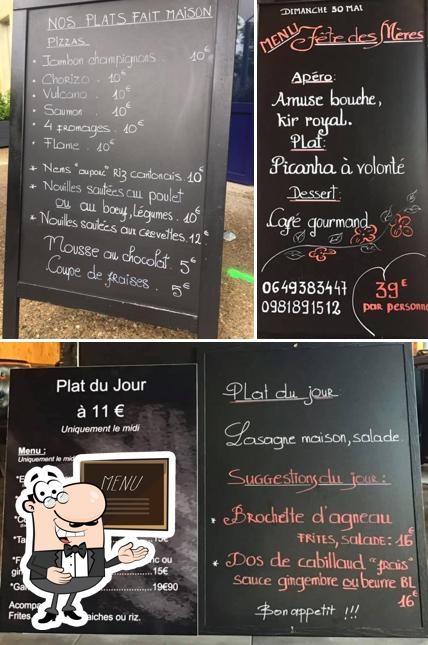 NOS PLATS FAIT MAISON
Pizzas
* Jambon champignons. 10€
* Chorizo . 10€
* Vulcano . 10€
* Saumon . 10€
* 4 fromages. 10€
* Flame . 10€
* Nems "au porc" Riz cantonais. 10€
* Nouilles sautées au poulet
ou au bœuf, Légumes. 10€
* Nouilles sautées aux crevettes. 12€
Mousse au chocolat. 5€
Coupe de fraises. 5€
DIMANCHE 30 MAI
MENU Fête des Mères
Apéro:
Amuse bouche,
kir royal.
Plat:
Picanha à volonté
Dessert:
Café gourmand
0649383447
0981891512
39€
par personne
Plat du Jour
à 11 €
Uniquement le midi
Menu :
Uniquement le mid
MENU
15€
ou
15€
19€90
Acompa
Frites, aiches ou riz.
Plat du jour:
Lasagne maison, salade.
Suggestions du jour:
* Brochette d'agneau
FRITES, SALADE: 16€
* Dos de cabillaud "frais"
sauce gingembre ou beurre BL
16€
Bon appetit !!!